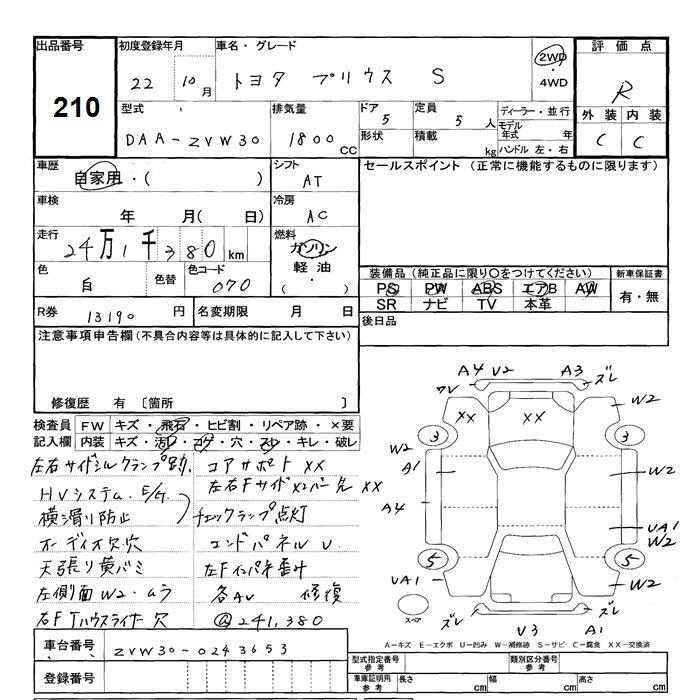 出品番号 初度登録年月 車名・グレード 評価点
210
22 10月 トヨタ プリウス S 2WD・4WD R
型式 排気量 ドア 定員 ディーラー・並行 外装 内装
DAA-ZVW30 1800CC 5 5人 モデル年式 年 C C
形状 積載 kg ハンドル 左・右
車歴 シフト セールスポイント (正常に機能するものに限ります)
自家用・( ) AT
車検 冷房
年 月( 日) AC
走行 燃料
24万1千380km ガソリン
軽油
色 色替 色コード ・
白 070
装備品 (純正品に限り○をつけてください) 新車保証書
PS PW ABS エアB AW 有・無
SR ナビ TV 本革
R券 13190円 名変期限 月 日
後日品
注意事項申告欄 (不具合内容等は具体的に記入して下さい)
修復歴 有 〔箇所 〕
検査員記入欄 FW キズ・飛石・ヒビ割・リペア跡・×要
内装 キズ・汚レ・コゲ・穴・スレ・キレ・破レ
左右サイドシルクランプ跡. コアサポート XX
HVシステム. E/G. 左右Fサイド×2バー先 XX
横滑り防止 チェックランプ点灯
オーディオ欠.穴 エンドパネル U
天張り黄バミ 左Fインパネ歪み
左側面W2.ムラ 各AU 修復
右Fハウスライナー欠 @241,380
A4 V2 A3
ズレ
XX XX W2
3 3
W2
A1 W2
A4
UA1
W2
5 5
UA1 W2
スペア ズレ ズレ
V3 A1
A-キズ E-エクボ U-凹み W-補修跡 S-サビ C-腐食 XX-交換済
車台番号 ZVW30-0243653
登録番号
型式指定番号 参考 類別区分番号 参考
車庫証明用 参考 長さ cm 幅 cm 高さ cm